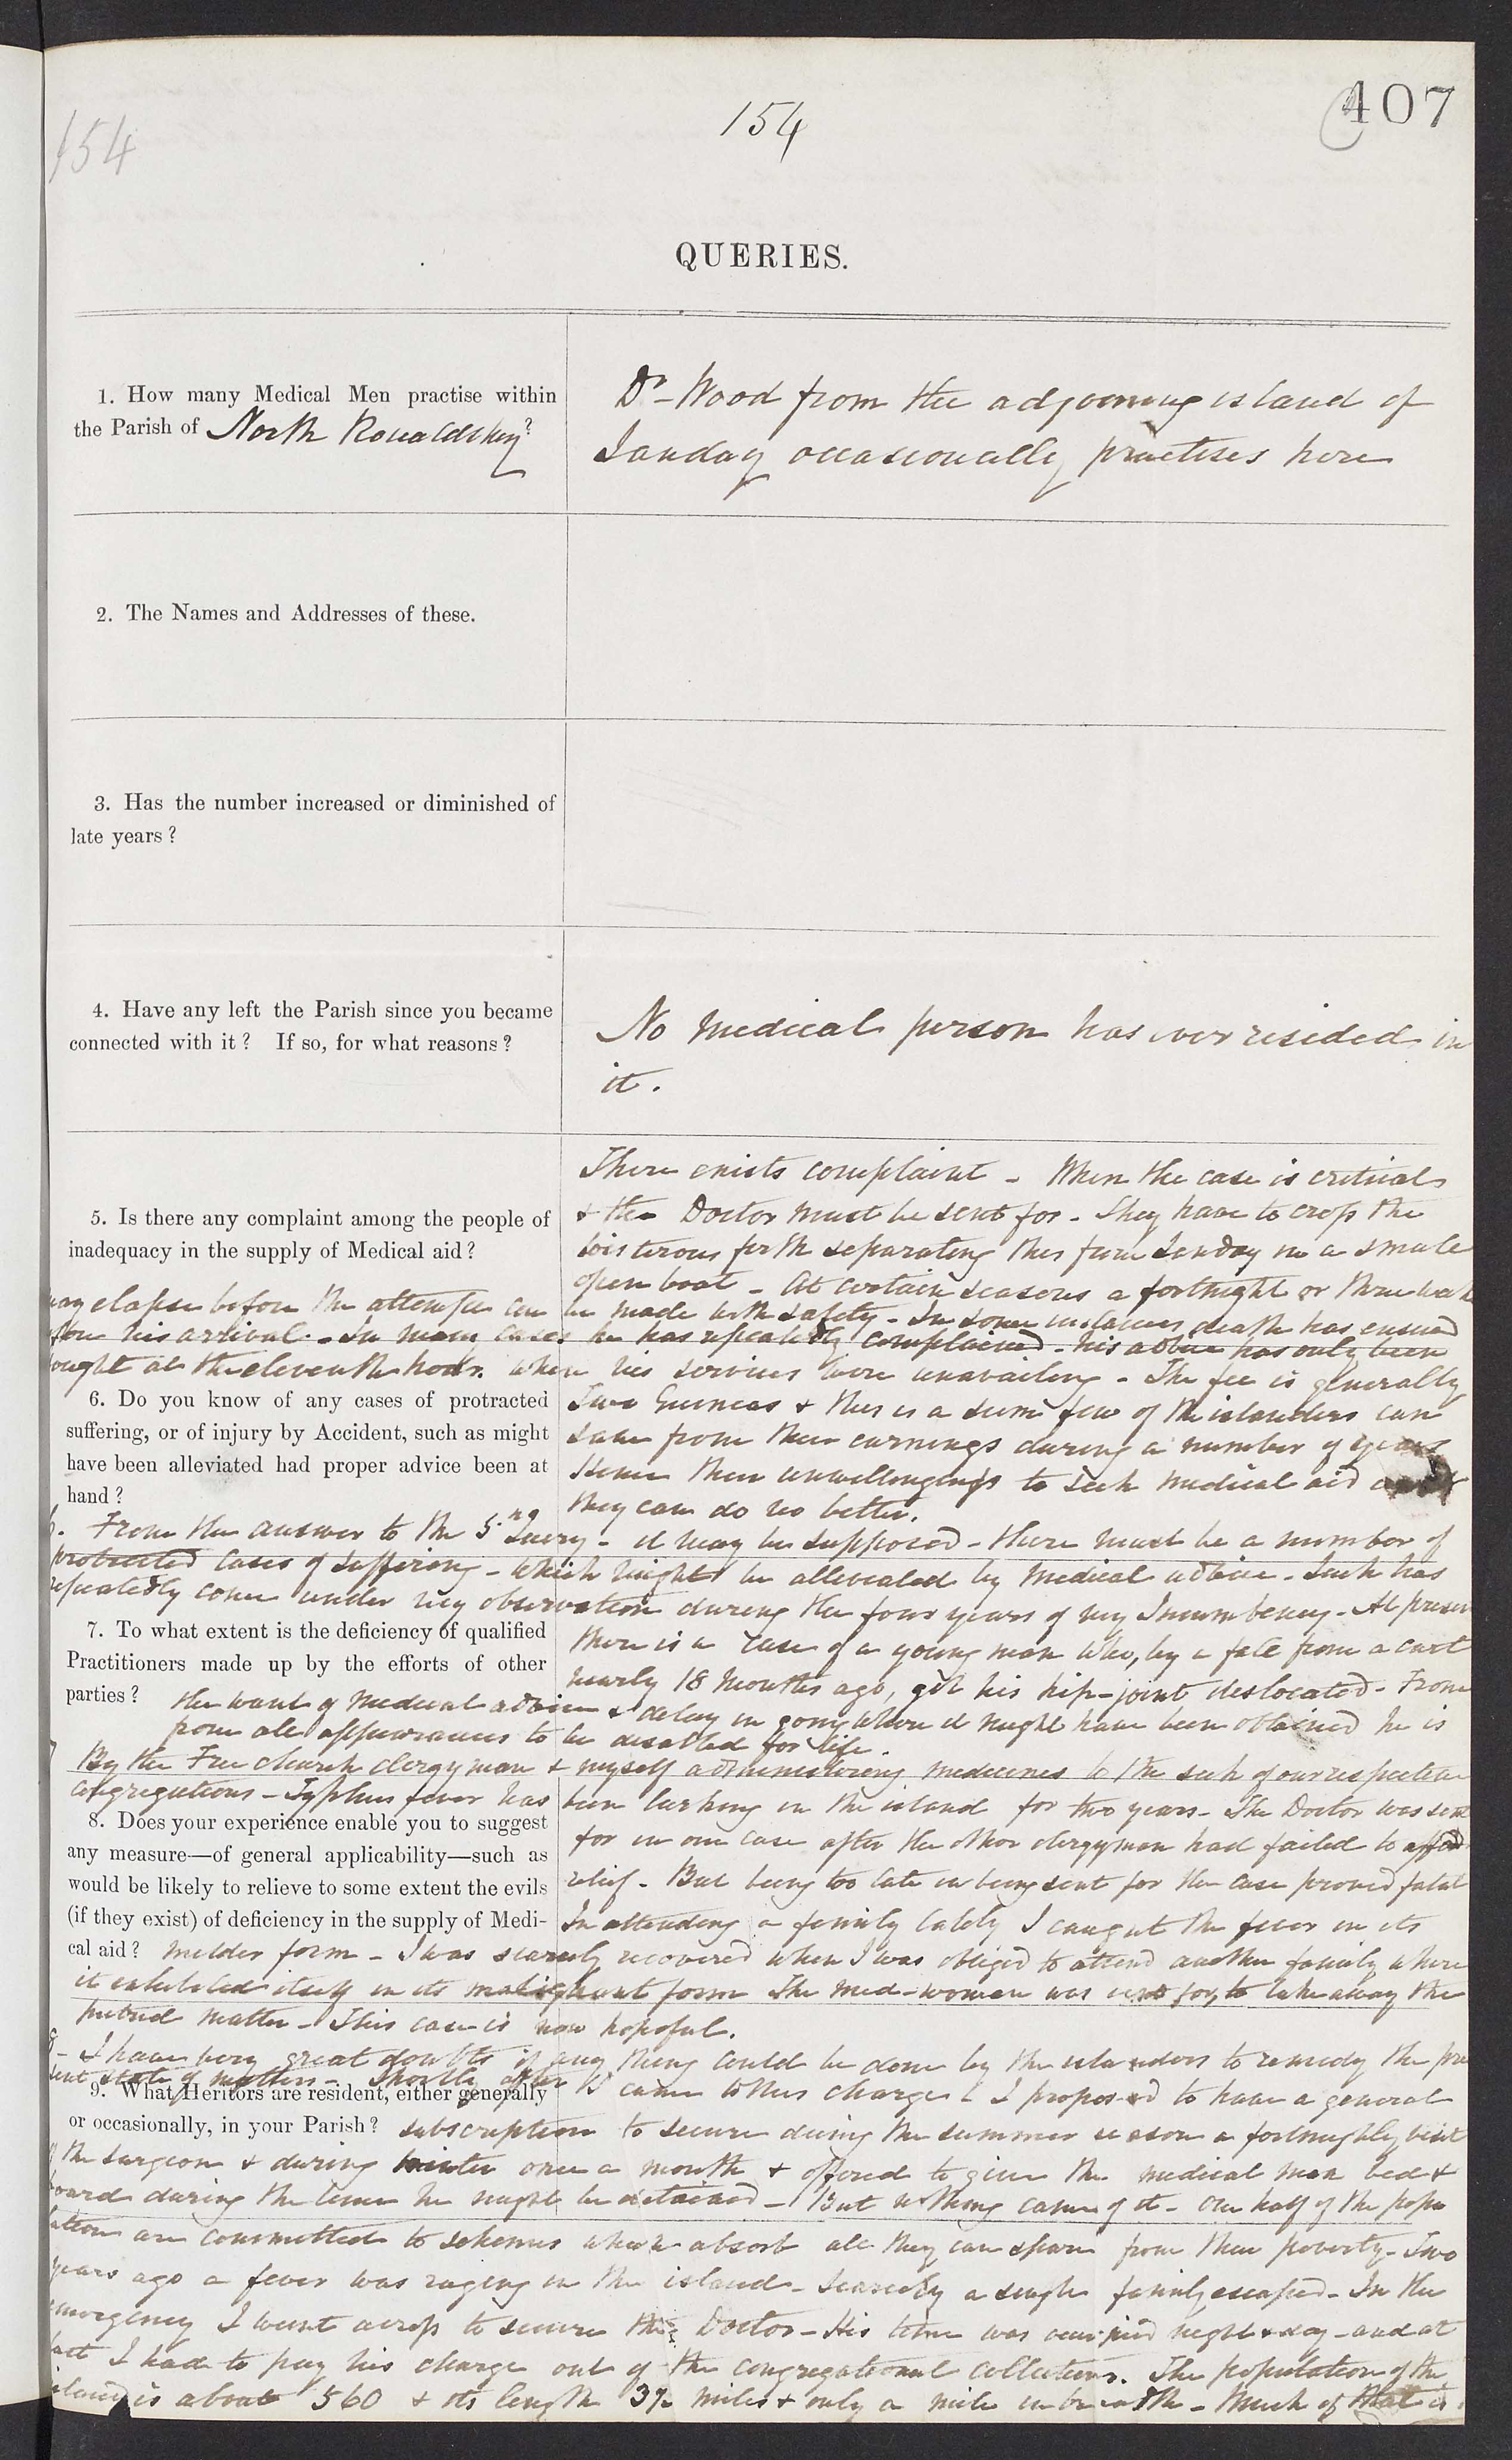 154
154
407
QUERIES.
1. How many Medical Men practise within
the Parish of North Ronaldshay?
Dr Wood from the adjoining island of
Sanday occasionally practises here
2. The Names and Addresses of these.
3. Has the number increased or diminished of
late years?
4. Have any left the Parish since you became
connected with it? If so, for what reasons?
No medical person has ever resided in
it.
5. Is there any complaint among the people of
inadequacy in the supply of Medical aid?
There exists complaint - When the case is critical
& the Doctor must be sent for - They have to cross the
boisterous firth separating this from Sanday in a small
open boat - At certain seasons a fortnight or three weeks
may elapse before the attempt can be made with safety - In some instances death has ensued
before his arrival - In many cases he has repeatedly complained - his advice has only been
sought at the eleventh hour. when his services were unavailing - The fee is generally
two Guineas & this is a sum few of the islanders can
save from their earnings during a number of years
Hence their unwillingness to seek medical aid
they can do no better.
6. Do you know of any cases of protracted
suffering, or of injury by Accident, such as might
have been alleviated had proper advice been at
hand?
6. From the answer to the 5th Query - it may be supposed - there must be a number of
protracted cases of suffering - which might be alleviated by medical advice - Such has
repeatedly come under my observation during the four years of my Incumbency - At present
there is a case of a young man who, by a fall from a cart
nearly 18 months ago, got his hip-joint dislocated - From
the want of medical advice & delay in going where it might have been obtained he is
from all appearances to be disabled for life.
7. To what extent is the deficiency of qualified
Practitioners made up by the efforts of other
parties?
7 By the Free church clergyman & myself administering medicines to the sick of our respective
congregations - Typhus fever has been lurking in the island for two years - The Doctor was sent
for in one case after the other clergyman had failed to afford
relief - But being too late in being sent for the case proved fatal
In attending a family lately I caught the fever in its
milder form - I was scarcely recovered when I was obliged to attend another family where
it exhibited itself in its malignant form The med-woman was sent for, to take away the
putrid matter - This case is now hopeful.
8. Does your experience enable you to suggest
any measure—of general applicability—such as
would be likely to relieve to some extent the evils
(if they exist) of deficiency in the supply of Medi-
cal aid?
8 - I have very great doubts if any thing could be done by the islanders to remedy the pre
sent state of matters - Shortly after I came to this charge I proposed to have a general
subscription to secure during the summer season a fortnightly visit
of the surgeon & during winter once a month & offered to give the medical man bed &
board during the time he might be detained - But nothing came of it - One half of the popu
lation are committed to schemes which absorb all they can spare from their poverty - Two
years ago a fever was raging in the island - Scarcely a single family escaped - In the
emergency I went across to secure the Doctor - His time was occupied night & day - and at
last I had to pay his charge out of the congregational collections. The population of the
island is about 560 & its length 3½ miles & only a mile in breadth - Much of that is
9. What Heritors are resident, either generally
or occasionally, in your Parish?